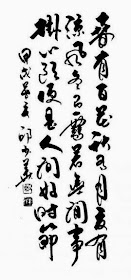 春有百花秋有月夏有
涼風冬有雪若無閒事
掛心頭便是人間好時節
甲戌